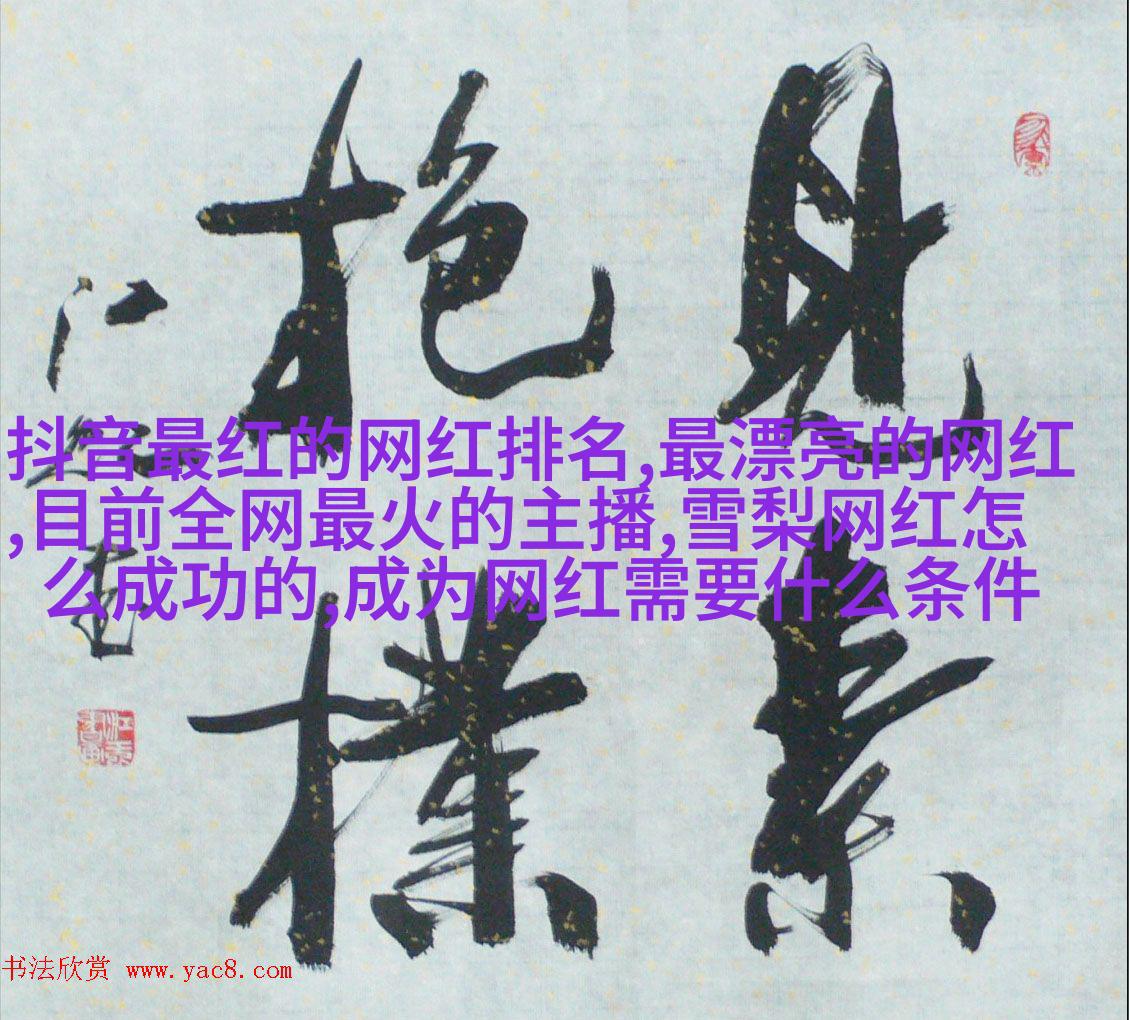 見素
抱樸
抖音最红的网红排名,最漂亮的网红
,目前全网最火的主播,雪梨网红怎
么成功的,成为网红需要什么条件
书法欣赏 www.yac8.com